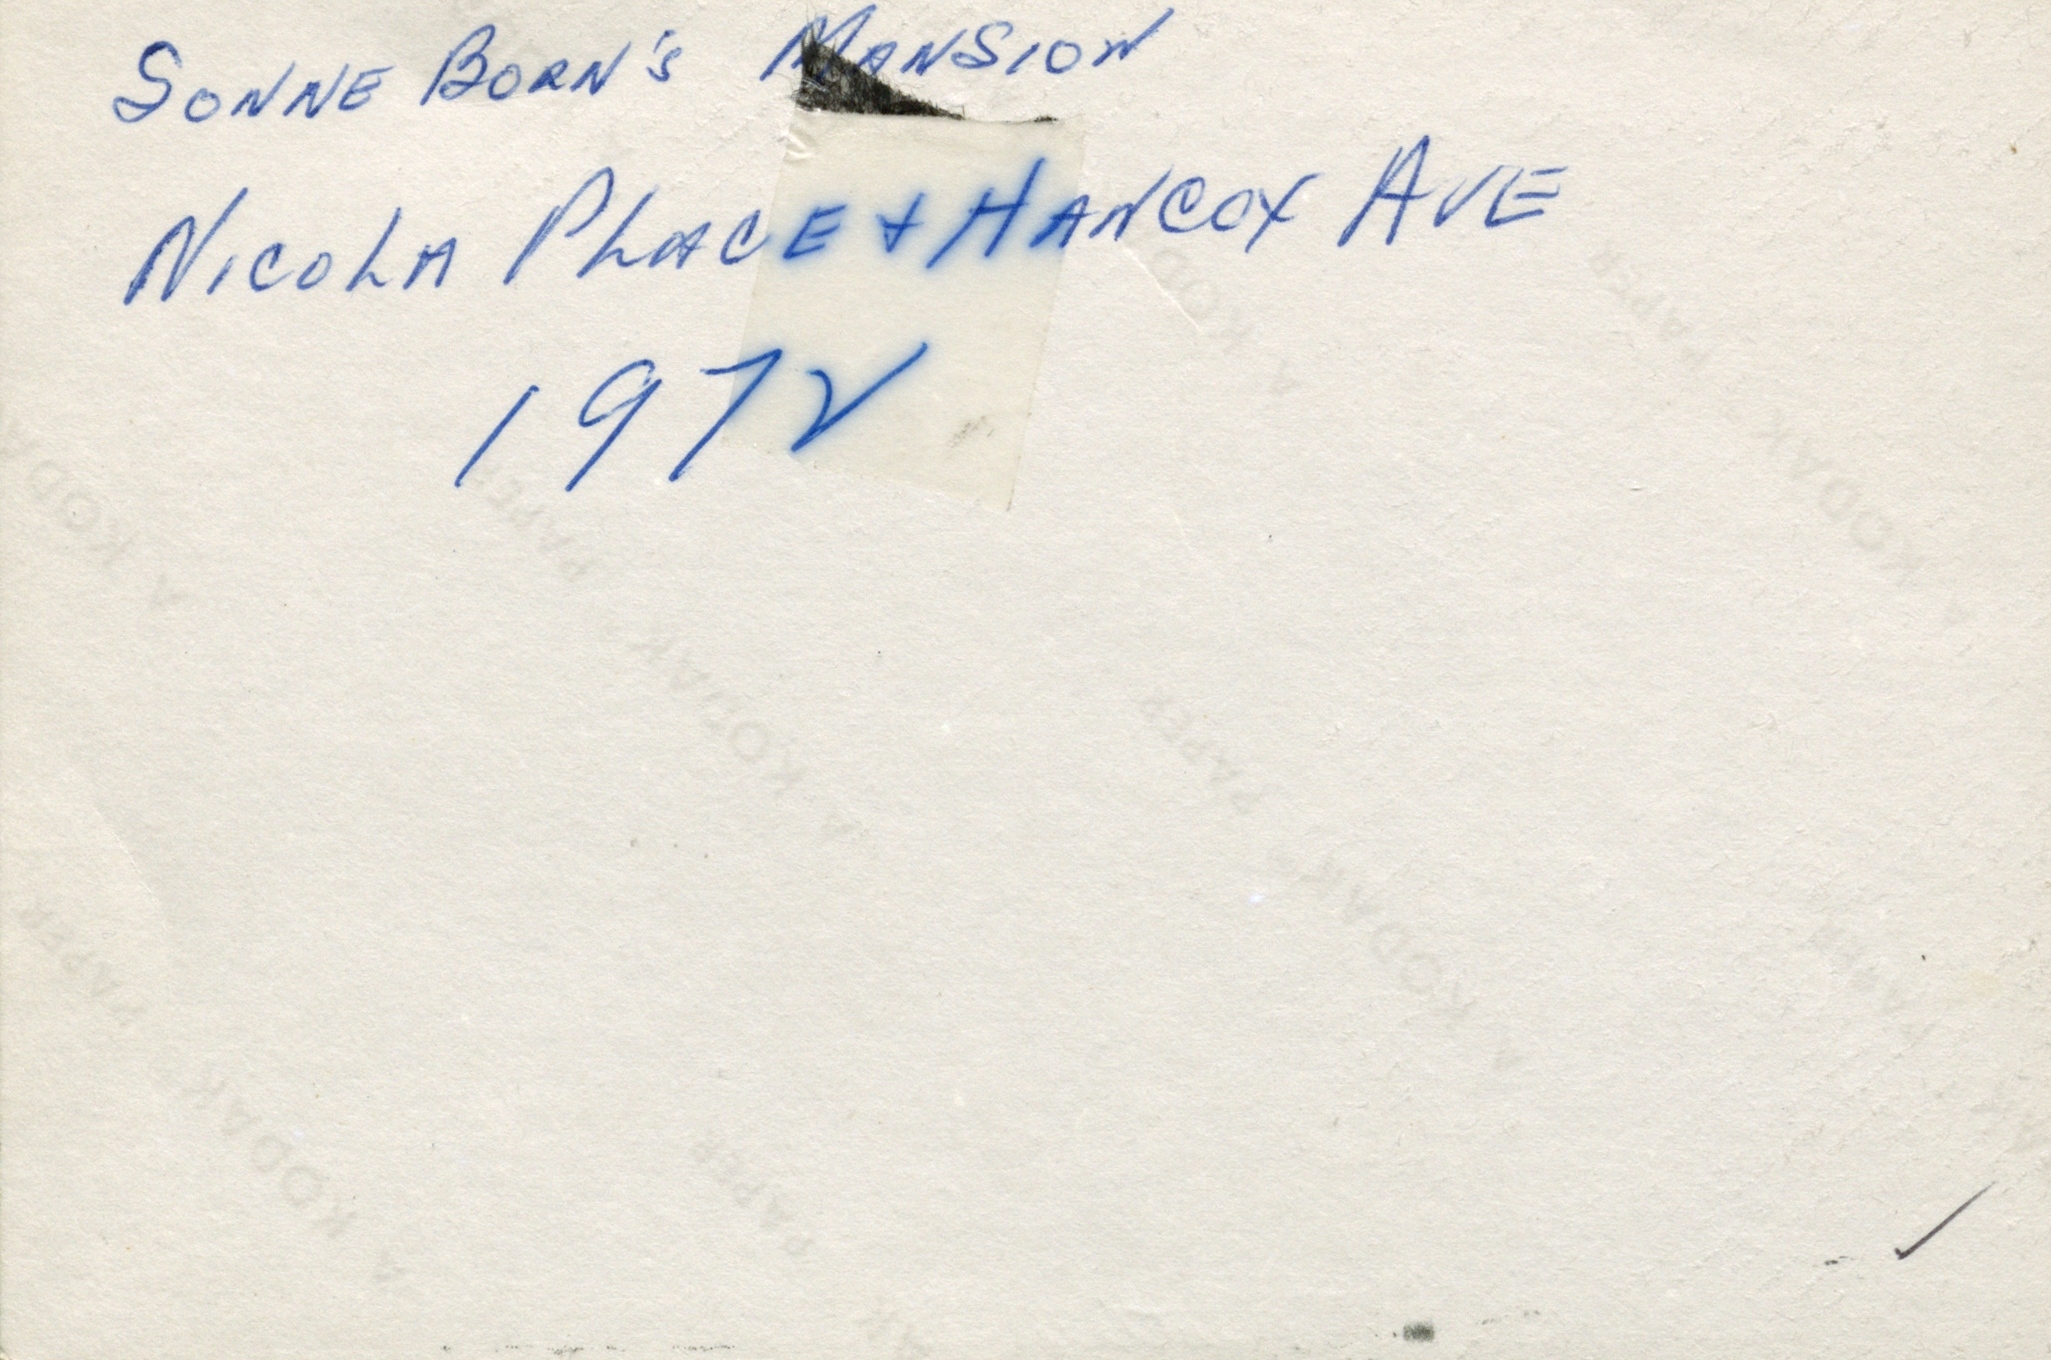 SONNE BORN'S MANSION
NICOLA PLACE + HANCOX AVE
1972
A KODAK PAPER
A KODAK PAPER
A KODAK PAPER
A KODAK PAPER
A KODAK PAPER